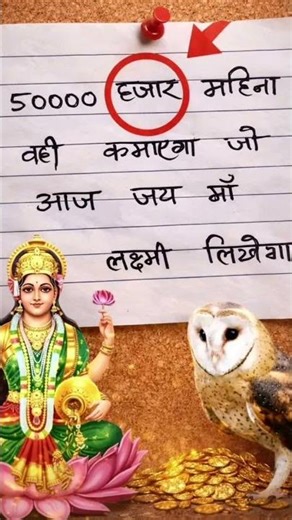 50000 हजार महिना
वही कमाएगा जो
आज जय माँ
लक्ष्मी लिखेगा